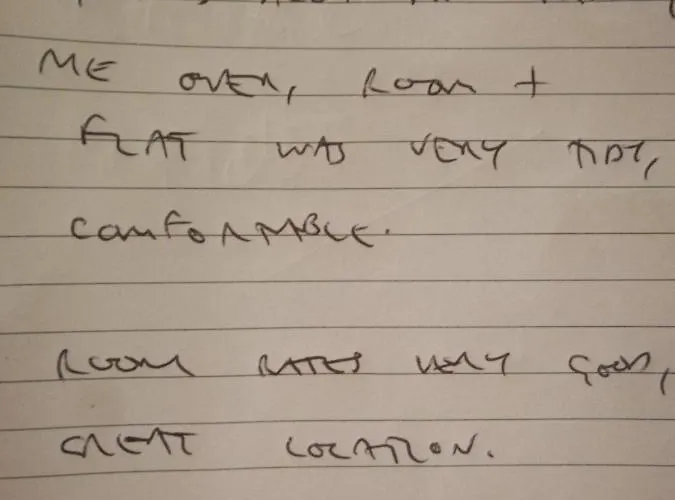 ME OVER, ROOM +
FLAT WAS VERY TIDY,
COMFORTABLE.
ROOM RATES VERY GOOD,
GREAT LOCATION.